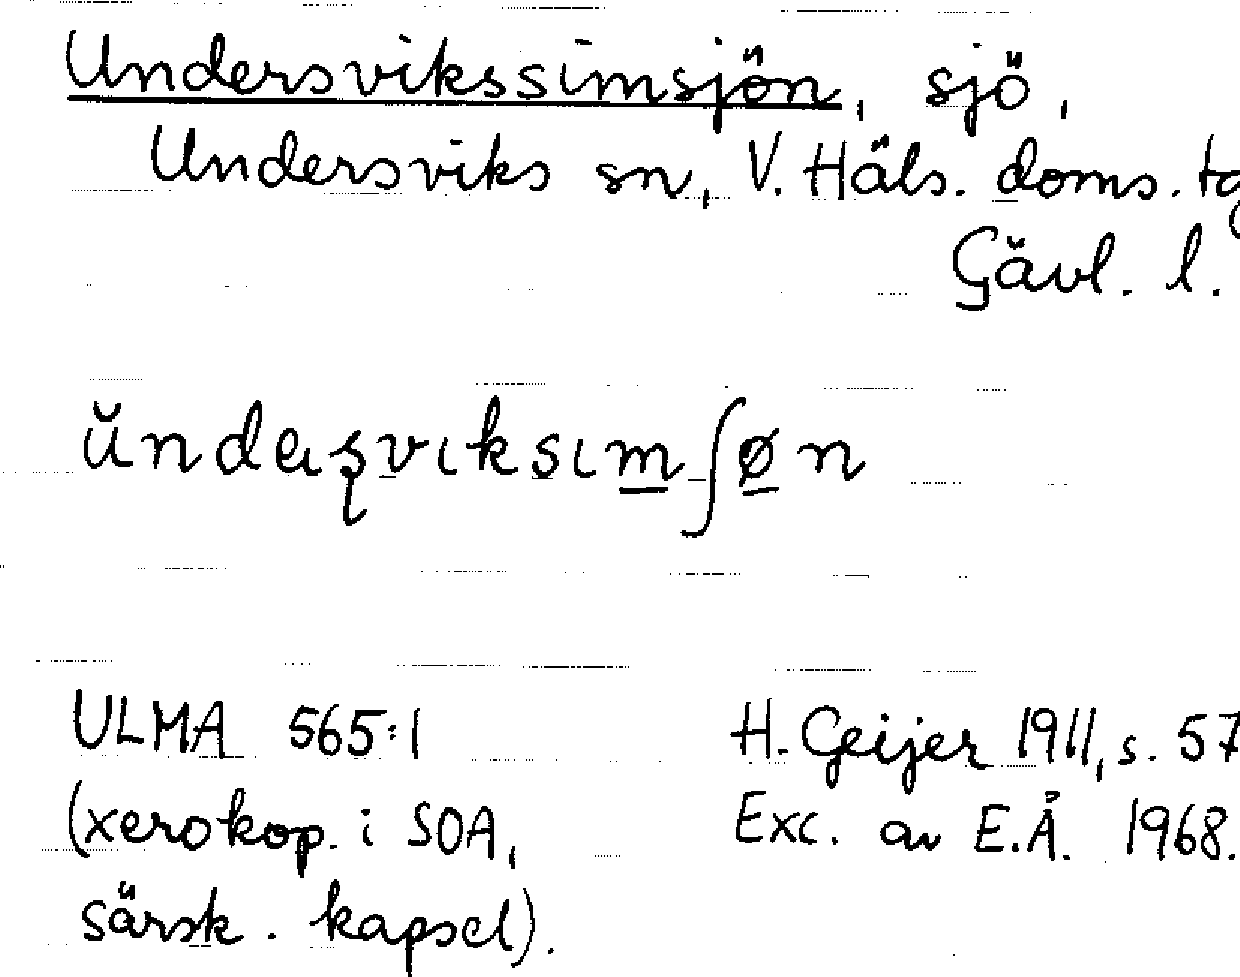 Undersvikssimsjön, sjö,
Undersviks sn, V. Häls. doms. tg
Gävl. l.
ULMA 565:1
(xerokop. i SOA,
särsk. kapsel).
H. Geijer 1911, s. 57
Exc. av E.Å. 1968.